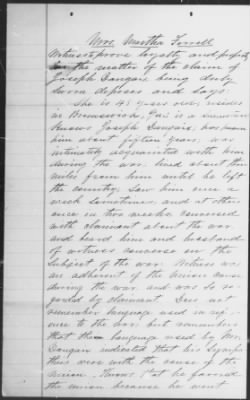 Mrs. Martha Ferrell
Witness to prove loyalty and property
In the matter of the claim of
Joseph Dangaix being duly
sworn deposes and says:
She is 43 years old, resides
in Brunswick, Ga. is a
knows Joseph Dangaix, has known
him about fifteen years. was
intimately acquainted with him
during the war. lived about three
miles from him until he left
the country. Saw him once a
week sometimes, and at other
once in two weeks. conversed
with claimant about the war
and heard him and husband
of witness converse on the
subject of the war. Witness was
an adherent of the Union cause
during the war and was so re-
garded by claimant. Does not
remember language used in refer-
ence to the war. but remembers
that the language used by Mr.
Dangaix indicated that his sympa-
thies were with the cause of the
Union. Knows that he favored
the union because he went